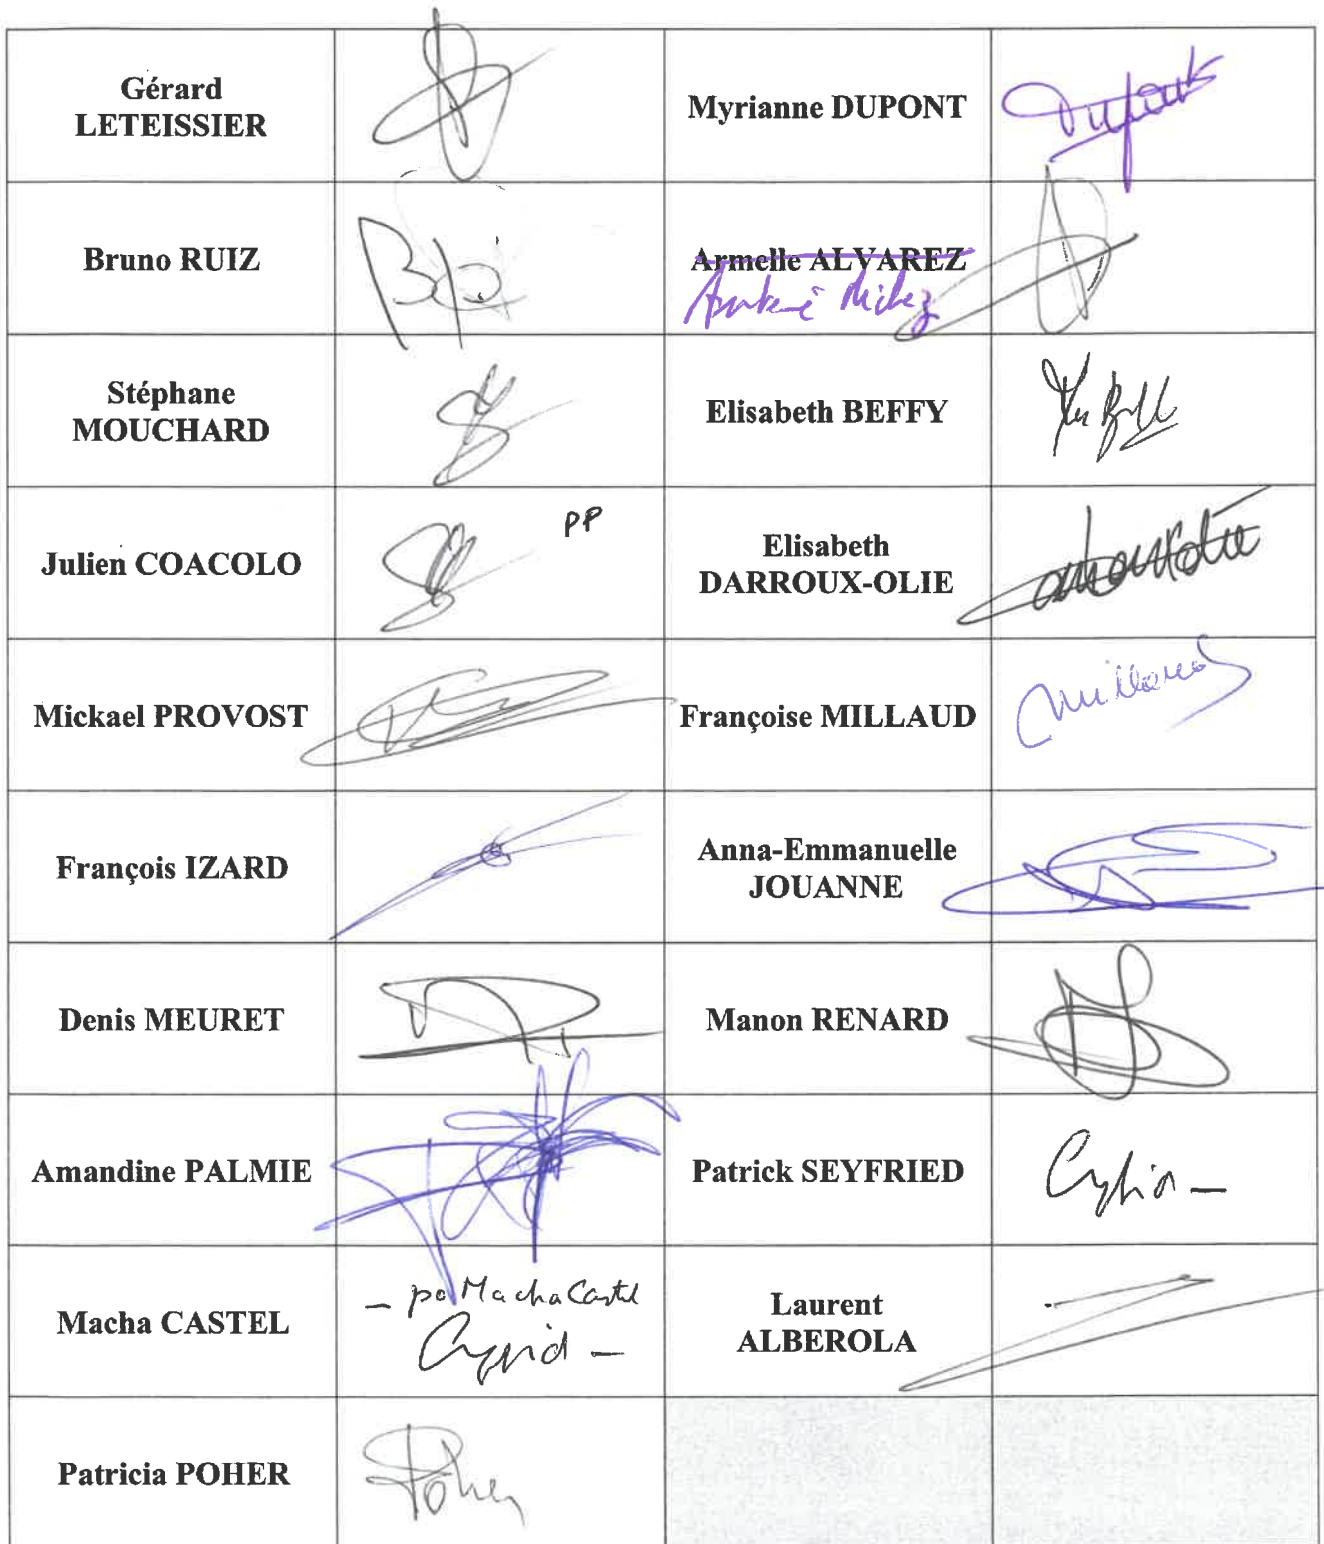 Gérard
LETEISSIER
Myrianne DUPONT
Dupont
Bruno RUIZ
Armelle ALVAREZ
Stéphane
MOUCHARD
Elisabeth BEFFY
Julien COACOLO
PP
Elisabeth
DARROUX-OLIE
Mickael PROVOST
Françoise MILLAUD
Millaud
François IZARD
Anna-Emmanuelle
JOUANNE
Denis MEURET
Manon RENARD
Amandine PALMIE
Patrick SEYFRIED
Macha CASTEL
Macha Castel
Laurent
ALBEROLA
Patricia POHER
Poher